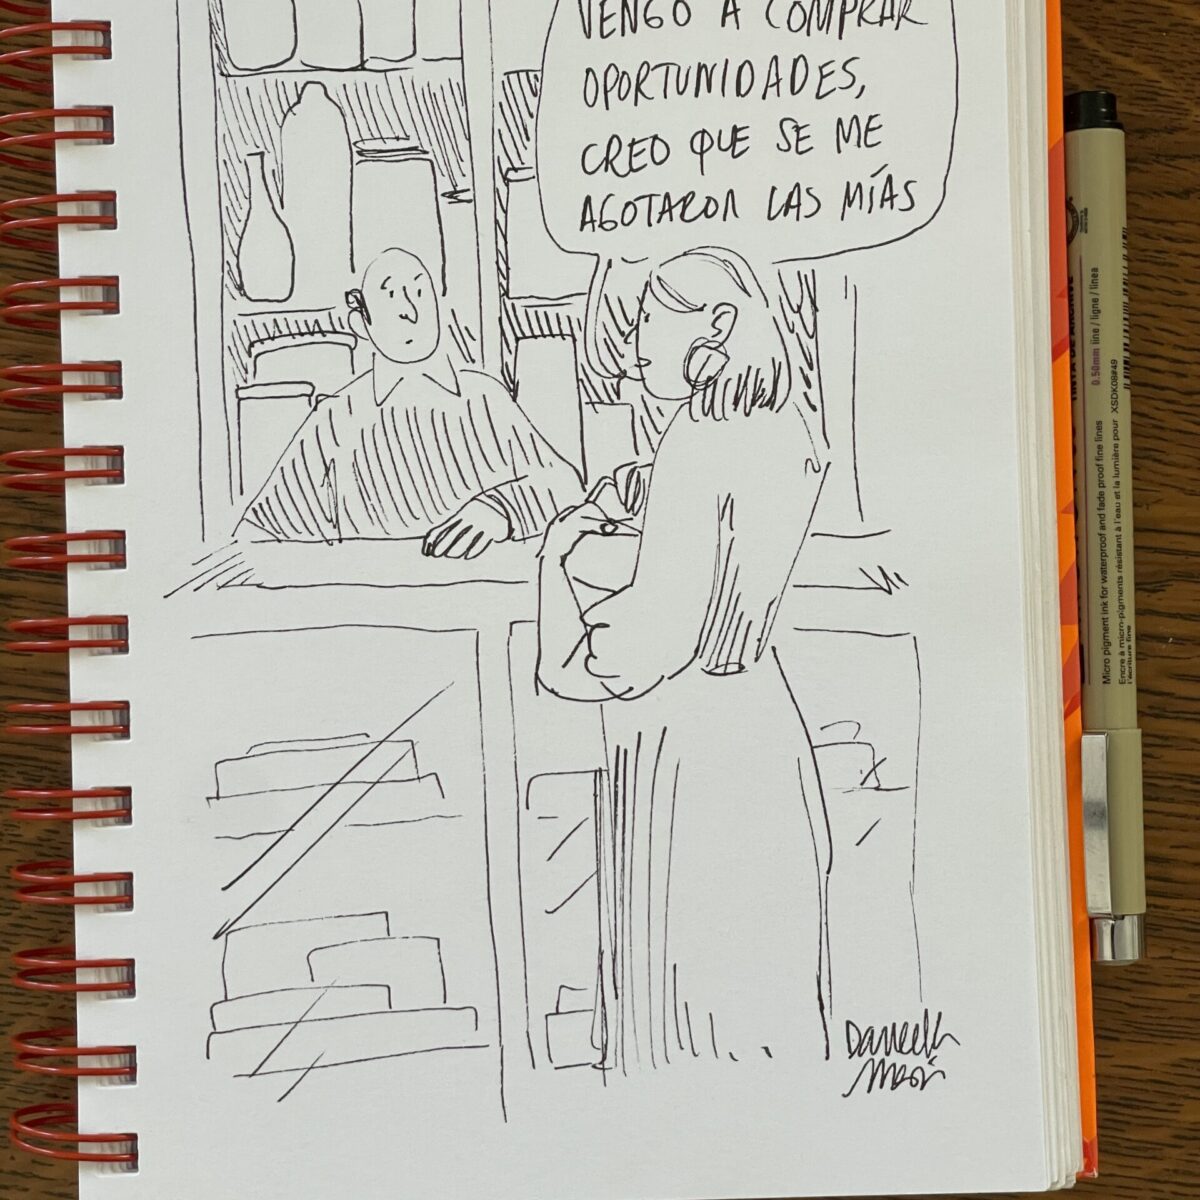 VENGO A COMPRAR
OPORTUNIDADES,
CREO QUE SE ME
AGOTARON LAS MÍAS
Micro pigment ink for waterproof and fade proof fine lines
Encre à micro-pigments résistant à l'eau et la lumière pour
l'écriture fine
XSDK08#49
0.50mm line / ligne / línea